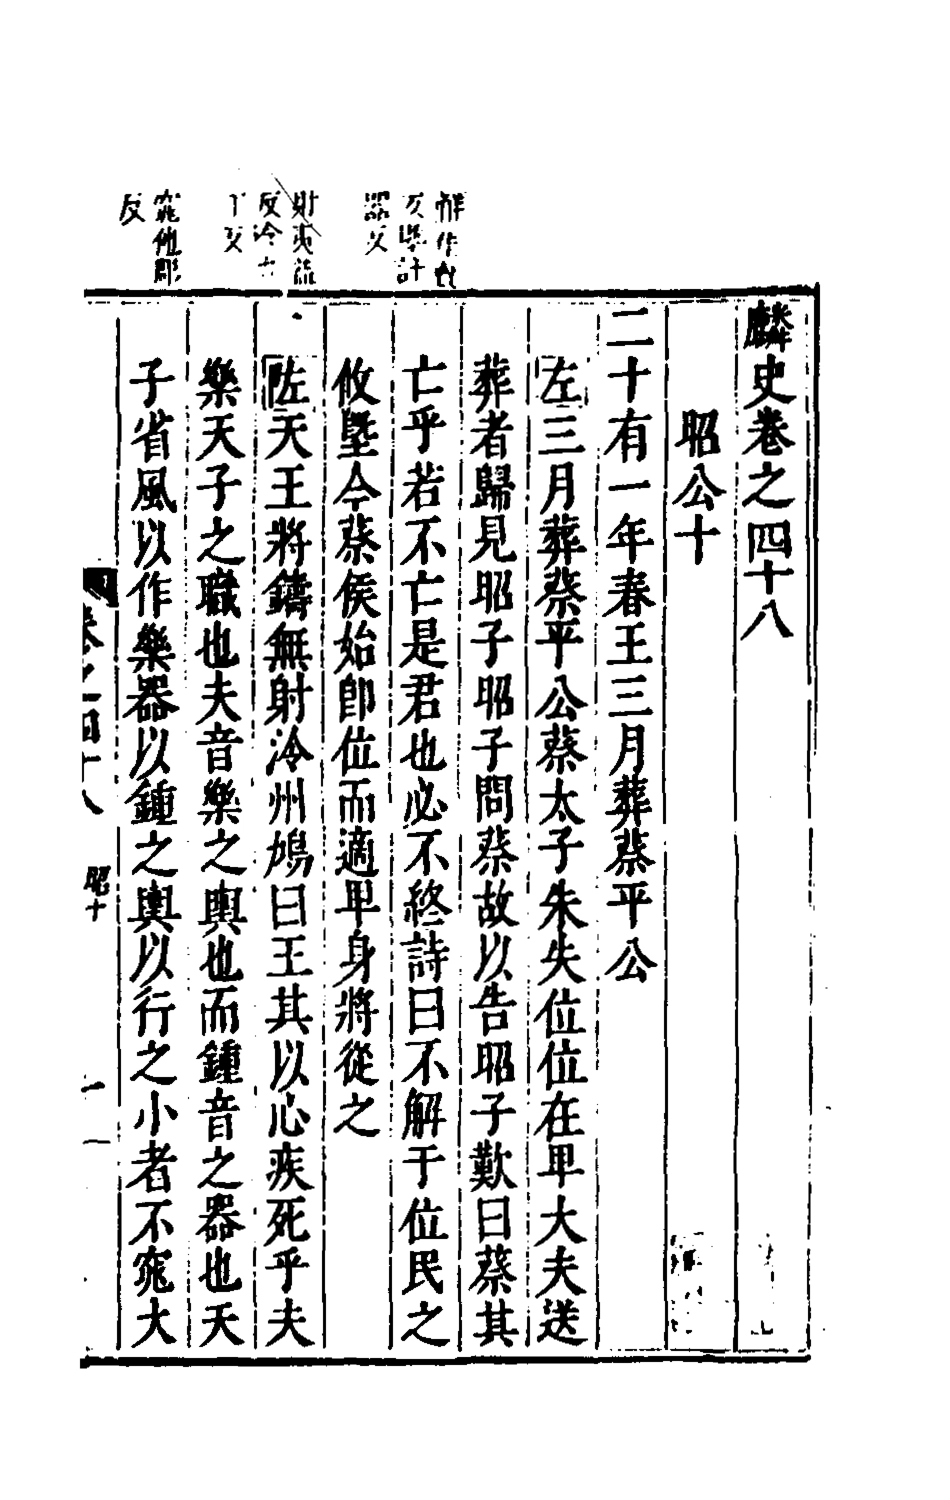 麟史卷之四十八
昭公十
二十有一年春王三月葬蔡平公
左三月葬蔡平公蔡太子朱失位位在卑大夫送
葬者歸見昭子昭子問蔡故以告昭子歎曰蔡其
亡乎若不亡是君也必不終詩曰不解于位民之
攸墍今蔡侯始卽位而適卑身將從之
佐天王將鑄無射泠州鳩曰王其以心疾死乎夫
樂天子之職也夫音樂之輿也而鍾音之器也天
子省風以作樂器以鍾之輿以行之小者不窕大
卷之四十八
昭十
一
器反
窕他彫
反